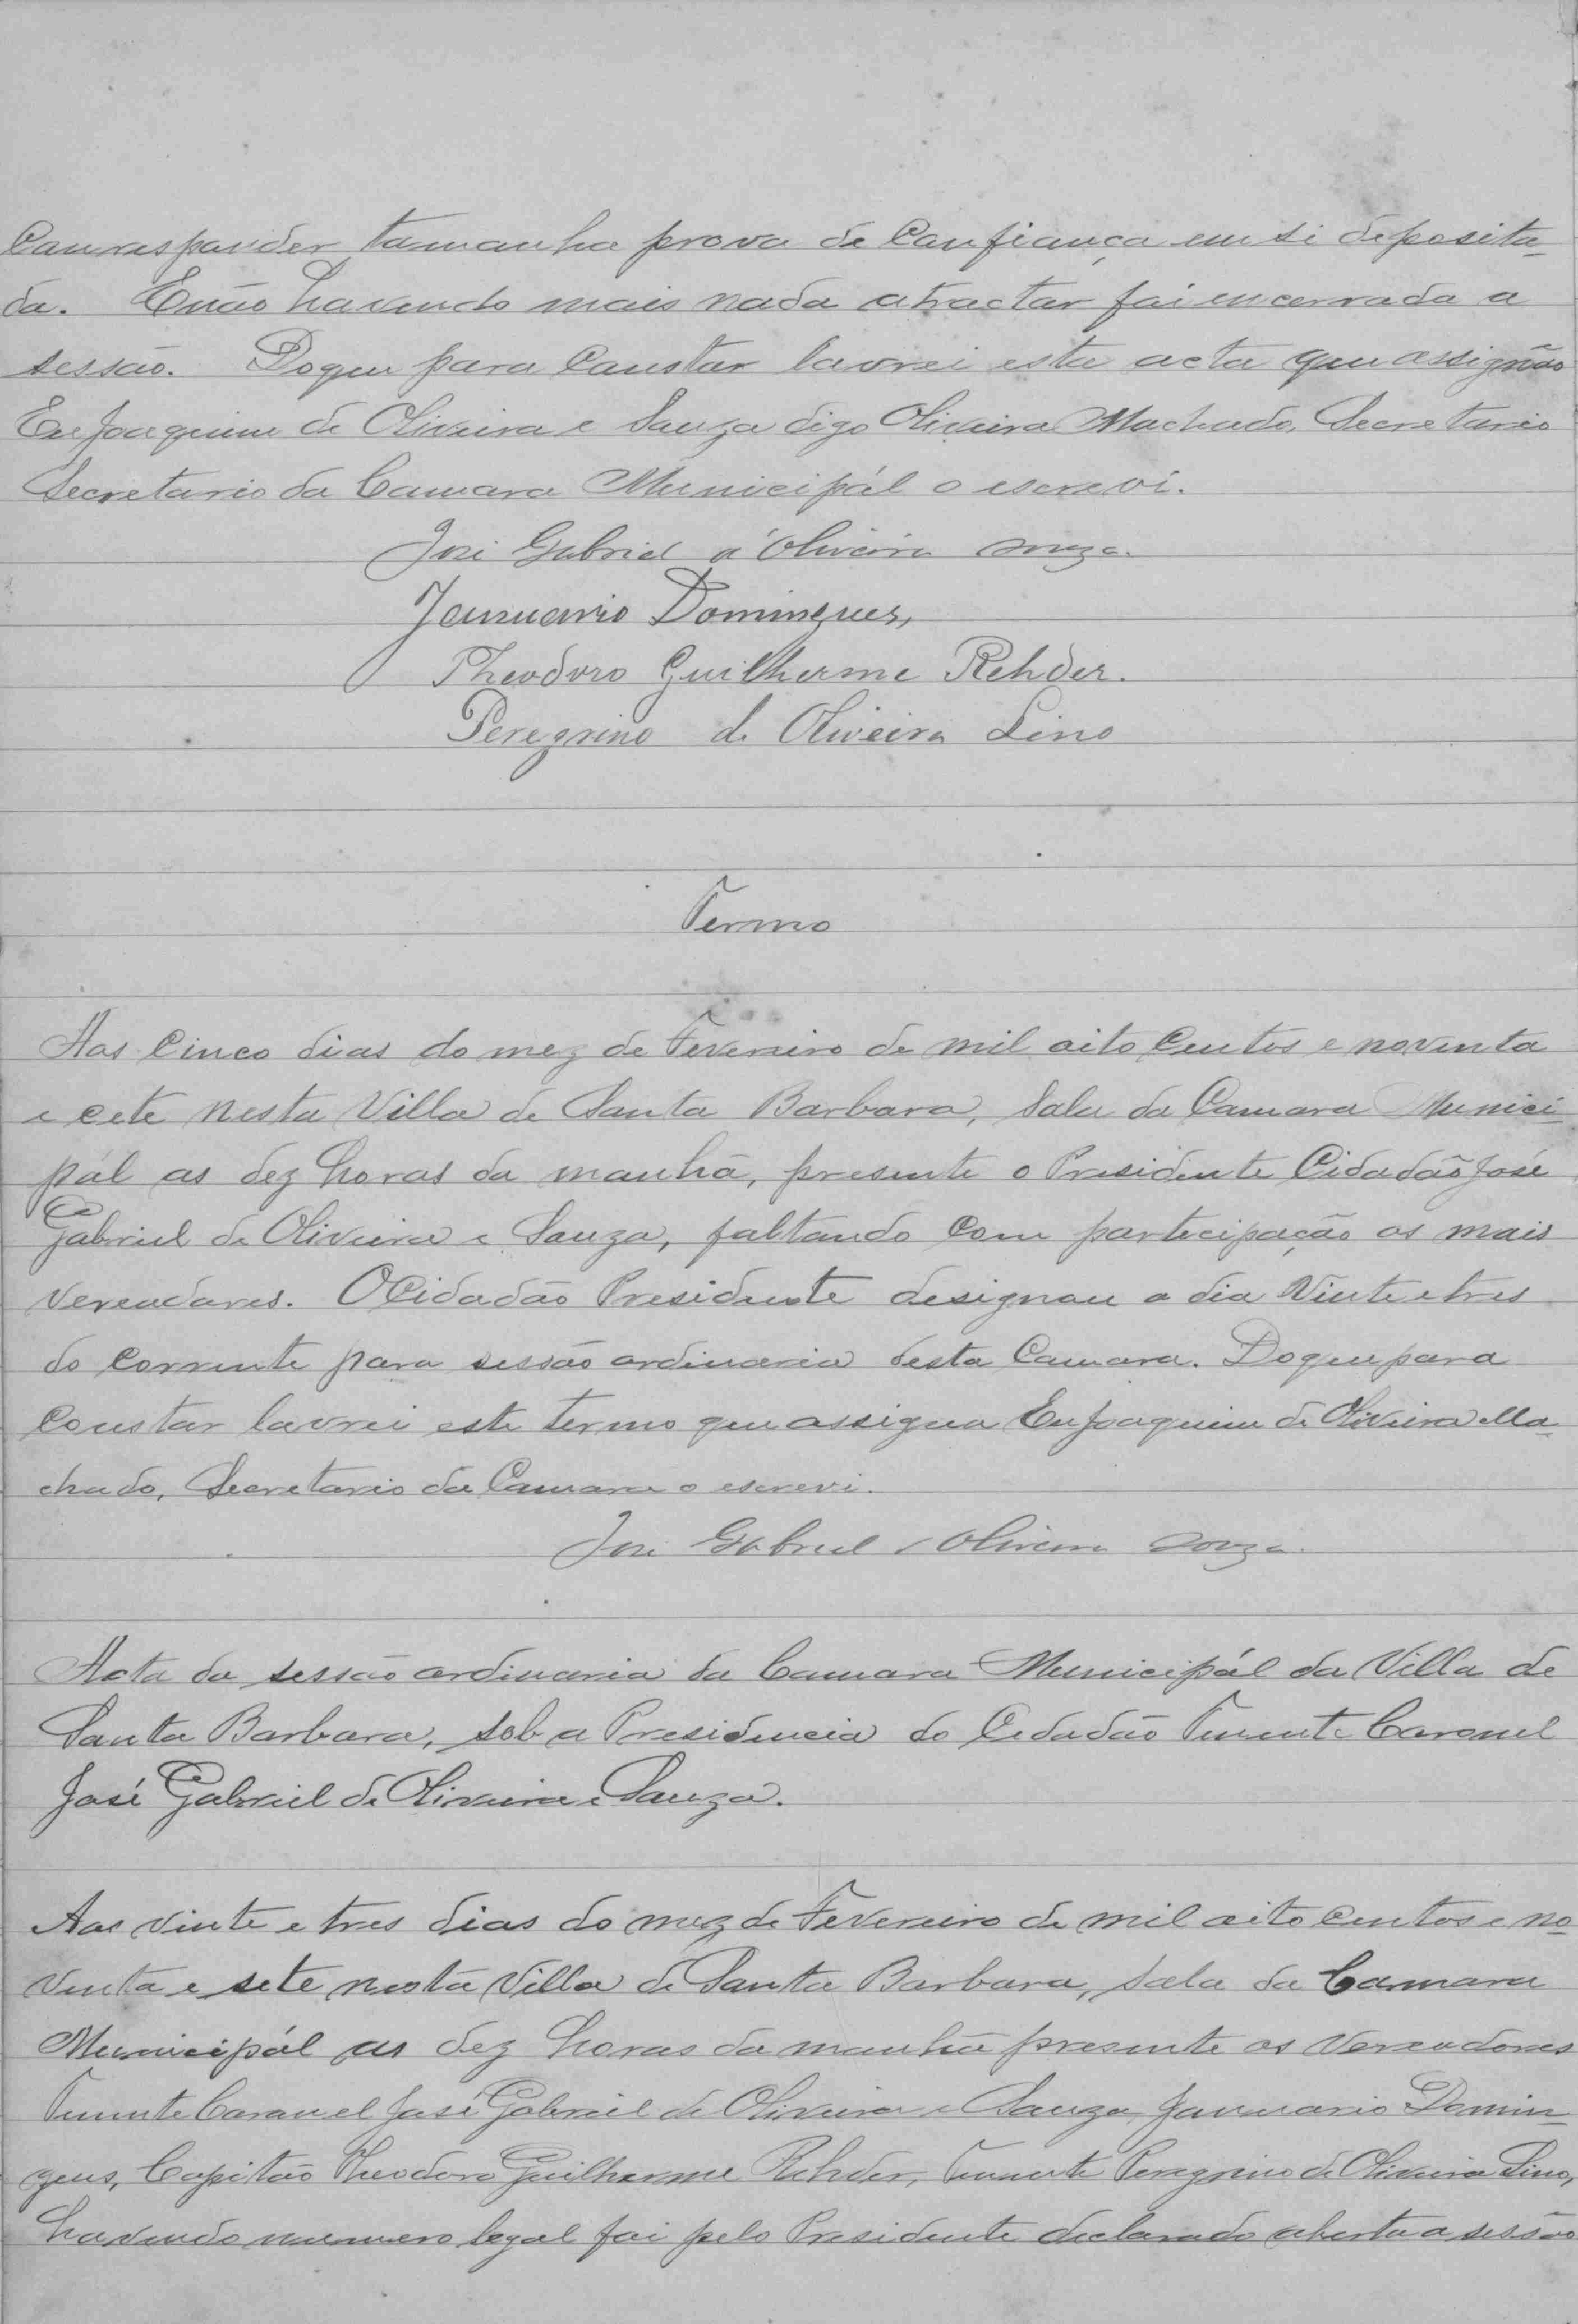 Correspander tamanha prova de Confiança em si deposita-
da. E não havendo mais nada a tractar foi encerrada a
sessão. Do que para Constar lavrei esta acta que assignão
Eu Joaquim de Oliveira e Souza digo Oliveira Machado, Secretario
Secretario da Camara Municipál o escrevi.
José Gabriel d'Oliveira Souza.
Januario Domingues,
Theodoro Guilherme Rehder.
Peregrino de Oliveira Lino
Termo
Aos Cinco dias do mez de Fevereiro de mil oito Centos e noventa
e cete nesta Villa de Santa Barbara, Sala da Camara Munici-
pál as dez horas da manhã, presente o Presidente Cidadão José
Gabriel de Oliveira e Souza, faltando Com partecipação os mais
Vereadores. O Cidadão Presidente designou o dia Vinte e tres
do Corrente para sessão ordinaria desta Camara. Do que para
Constar lavrei este termo que assigna Eu Joaquim de Oliveira Ma-
chado, Secretario da Camara o escrevi.
José Gabriel Oliveira Souza.
Acta da sessão ordinaria da Camara Municipál da Villa de
Santa Barbara, sob a Presidencia do Cidadão Tenente Coronel
José Gabriel de Oliveira e Souza.
Aos Vinte e tres dias do mez de Fevereiro de mil oito Centos e no-
venta e sete nesta Villa de Santa Barbara, sala da Camara
Municipál as dez horas da manhã presente os Vereadores
Tenente Coronel José Gabriel de Oliveira e Souza, Januario Domin-
gues, Capitão Theodoro Guilherme Rehder, Tenente Peregrino de Oliveira Lino,
havendo numero legal foi pelo Presidente declarado aberta a sessão